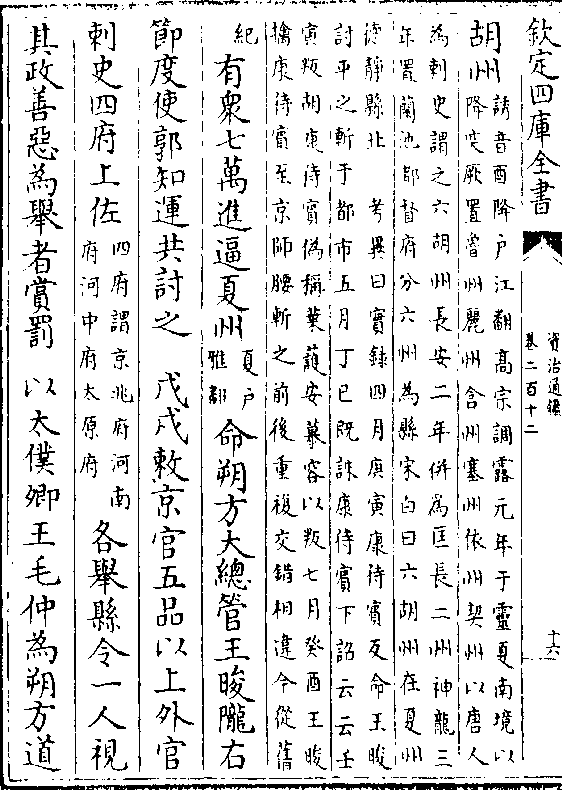 欽定四庫全書
資治通鑑
卷二百十二
十六
胡州
誘音酉降户江翻高宗調露元年于靈夏南境以
降突厥置魯州麗州含州塞州依州契州以唐人
為刺史謂之六胡州長安二年併為匡長二州神龍三
年置蘭池都督府分六州為縣宋白曰六胡州在夏州
德靜縣北 考異曰實録四月庚寅康待賓反命王晙
討平之斬于都市五月丁巳既誅康待賓下詔云云壬
寅叛胡康待賓偽稱葉䕶安慕容以叛七月癸酉王晙
擒康待賓至京師腰斬之前後重複交錯相違今從舊
紀
有衆七萬進逼夏州
夏户
雅翻
命朔方大總管王晙隴右
節度使郭知運共討之 戊戌敕京官五品以上外官
刺史四府上佐
四府謂京兆府河南
府河中府太原府
各舉縣令一人視
其政善惡為舉者賞罰 以太僕卿王毛仲為朔方道